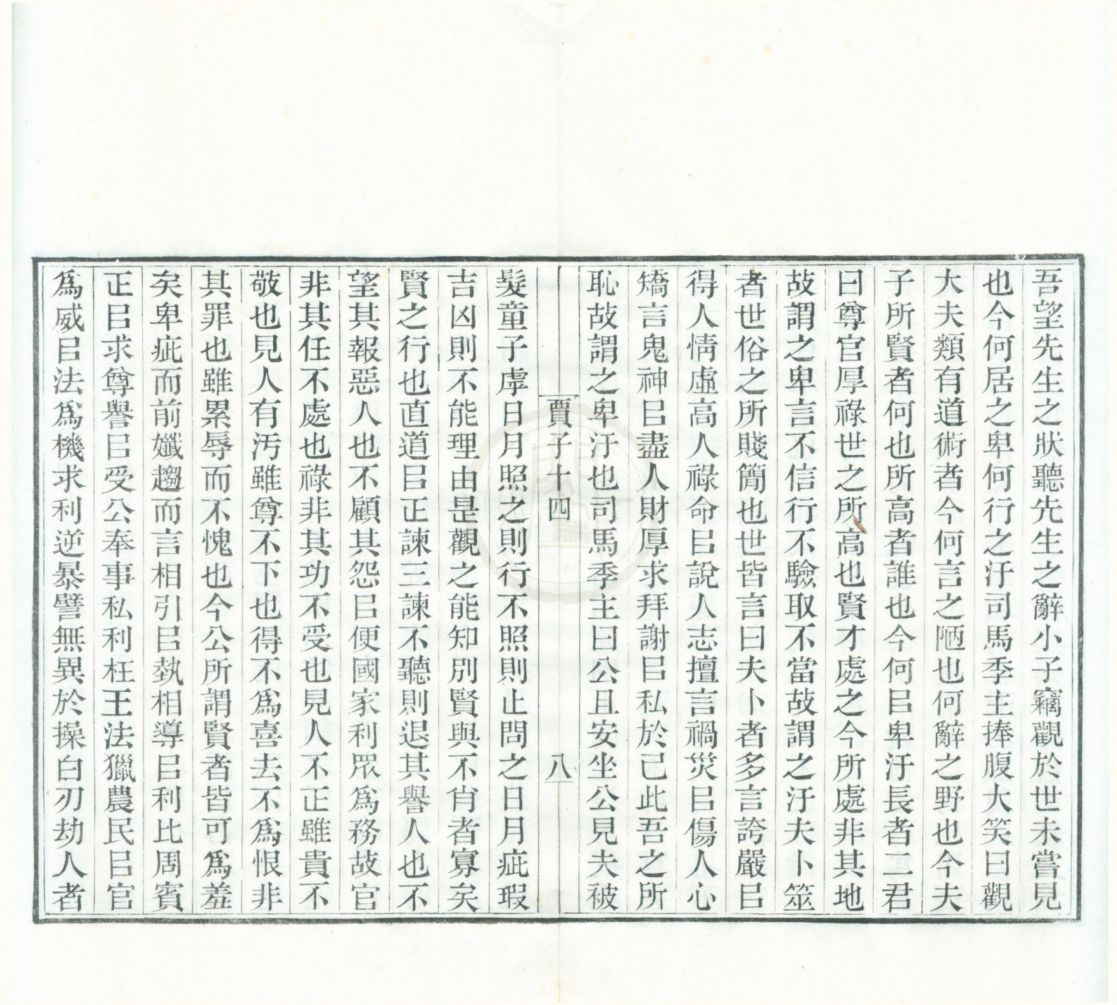 吾望先生之狀聽先生之辭小子竊觀於世未嘗見
也今何居之卑何行之汙司馬季主捧腹大笑曰觀
大夫類有道術者今何言之陋也何辭之野也今夫
子所賢者何也所高者誰也今何㠯卑汙長者二君
曰尊官厚祿世之所高也賢才處之今所處非其地
故謂之卑言不信行不驗取不當故謂之汙夫卜筮
者世俗之所賤簡也世皆言曰夫卜者多言誇嚴㠯
得人情虛高人祿命㠯說人志擅言禍災㠯傷人心
矯言鬼神㠯盡人財厚求拜謝㠯私於己此吾之所
恥故謂之卑汙也司馬季主曰公且安坐公見夫被
賈子十四 八
髮童子虖日月照之則行不照則止問之日月疵瑕
吉凶則不能理由是觀之能知別賢與不肖者寡矣
賢之行也直道㠯正諫三諫不聽則退其譽人也不
望其報惡人也不顧其怨㠯便國家利眾爲務故官
非其任不處也祿非其功不受也見人不正雖貴不
敬也見人有汚雖尊不下也得不爲喜去不爲恨非
其罪也雖累辱而不愧也今公所謂賢者皆可爲羞
矣卑疵而前孅趨而言相引㠯埶相導㠯利比周賓
正㠯求尊譽㠯受公奉事私利枉王法獵農民㠯官
爲威㠯法爲機求利逆暴譬無異於操白刃劫人者